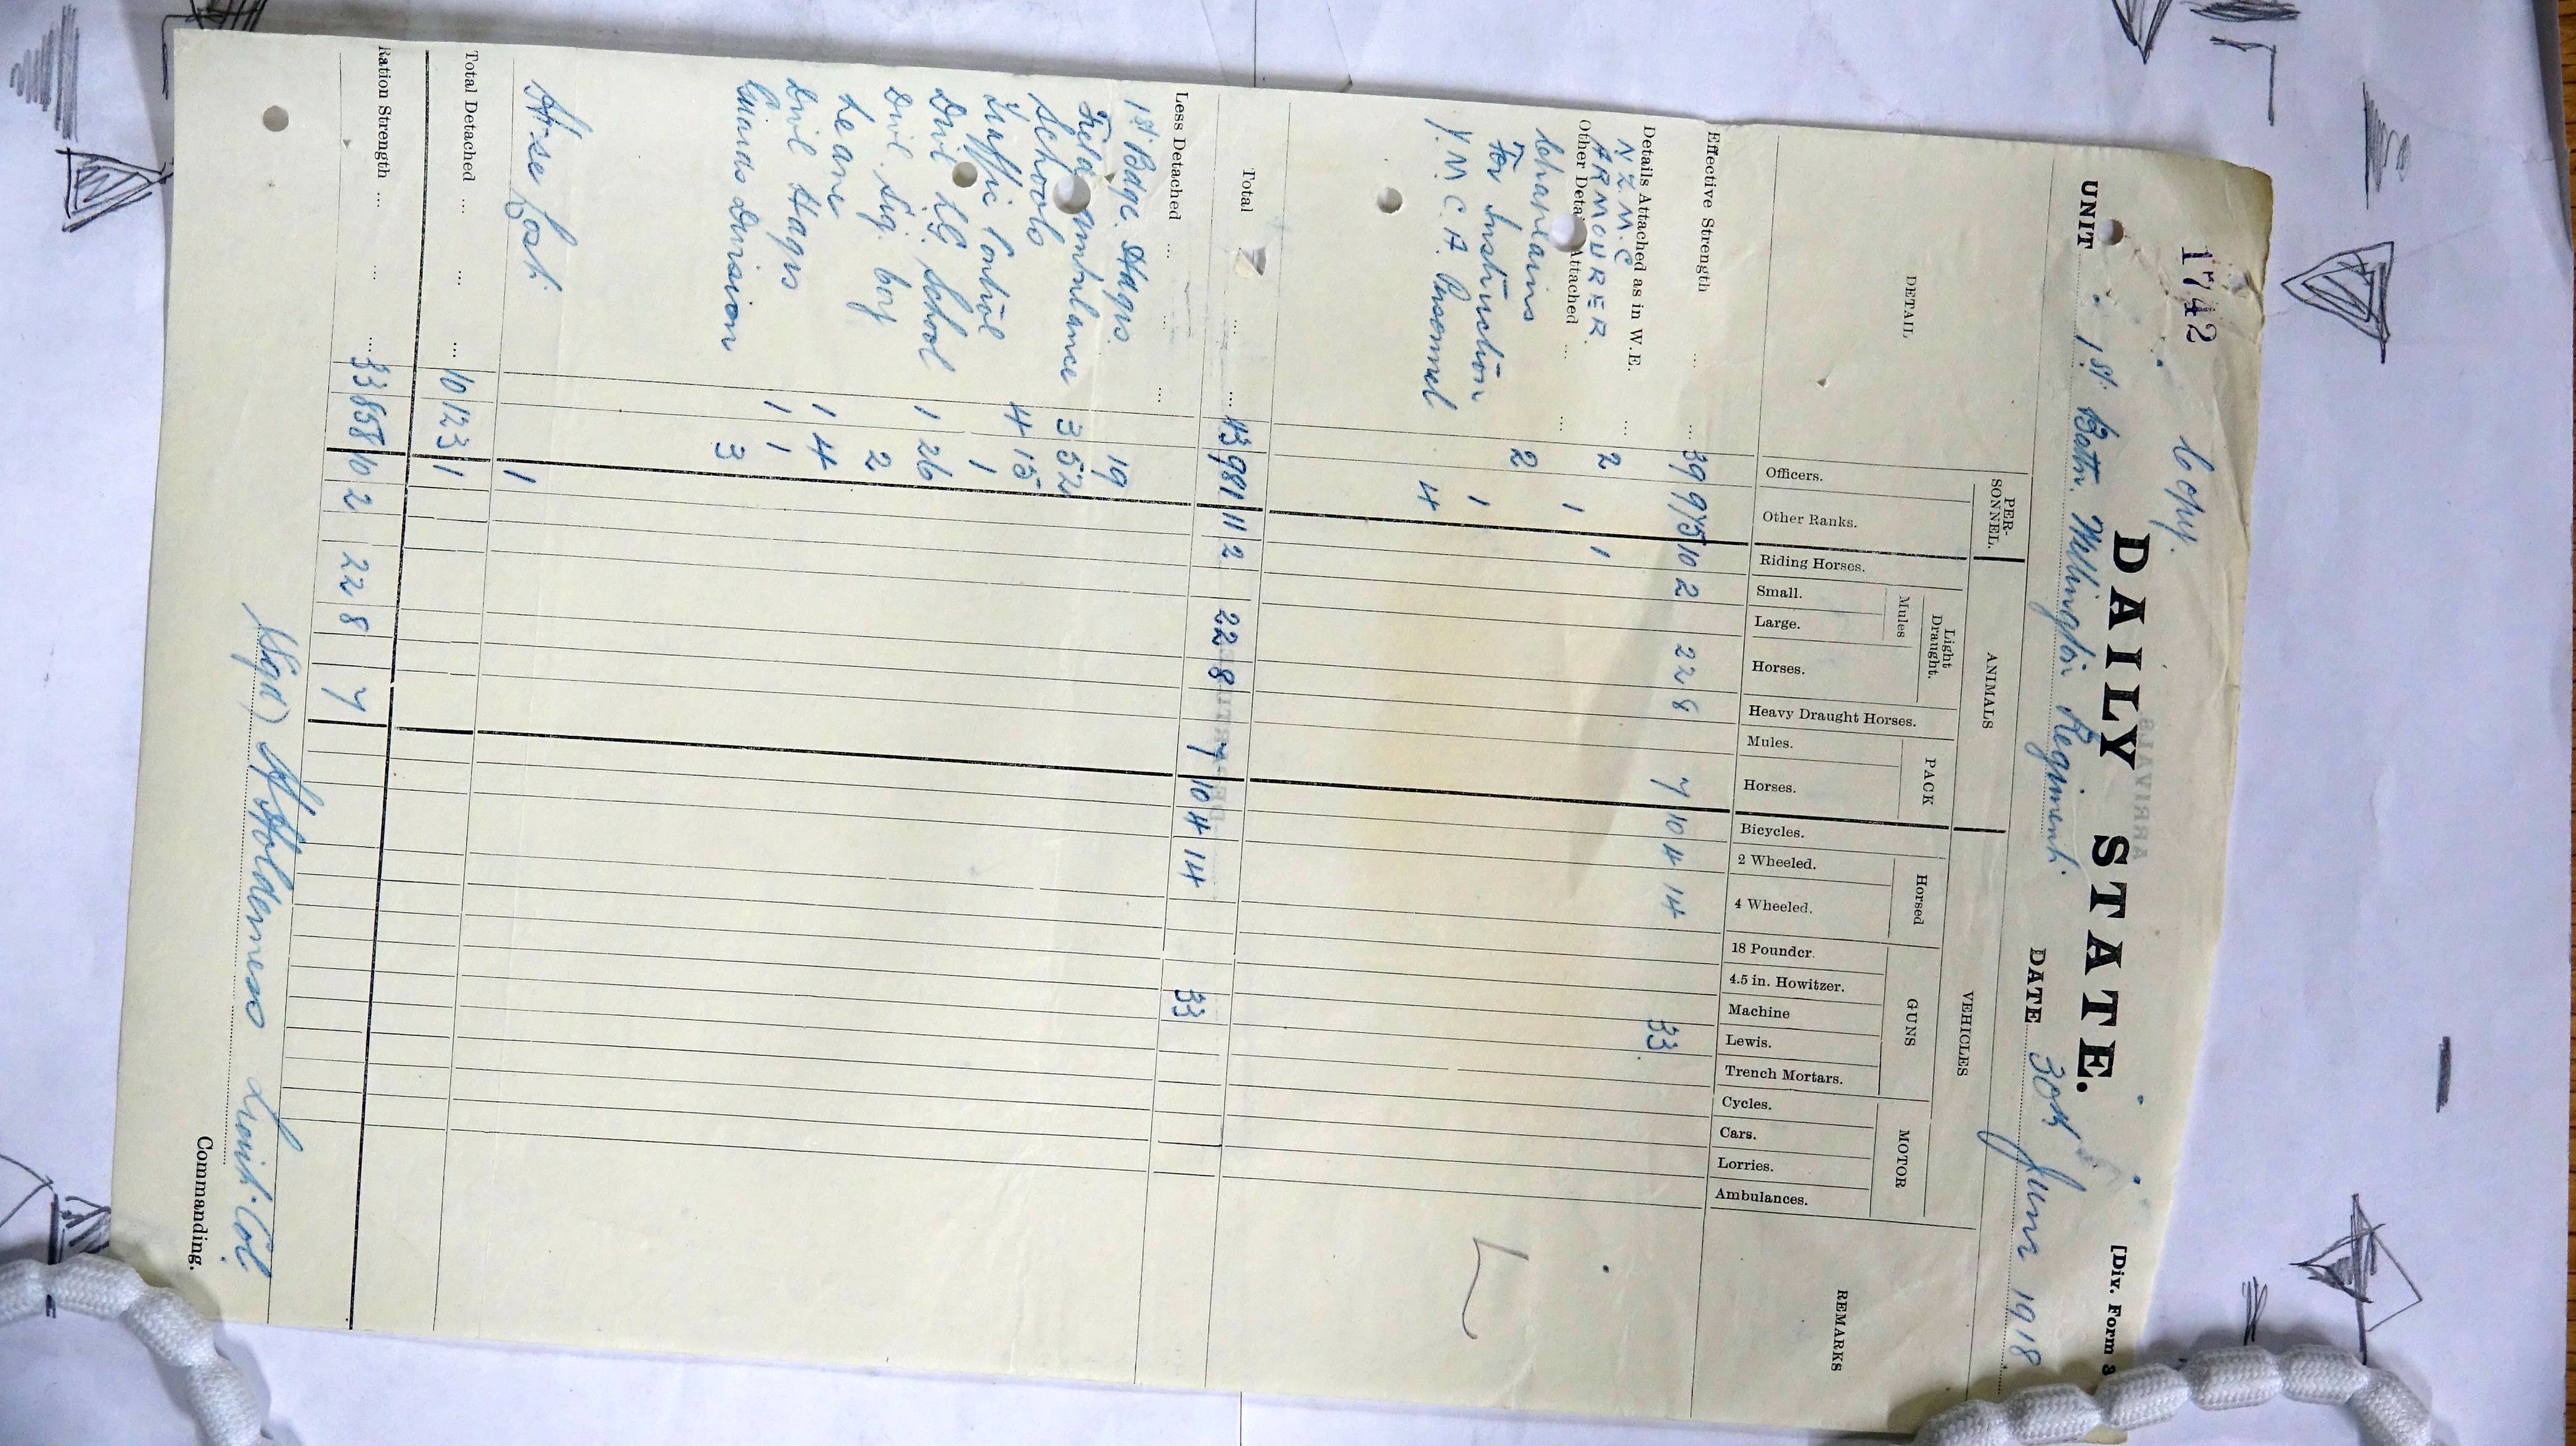 1742
Copy.
[Div. Form 3
DAILY STATE.
UNIT 1st Battn. Wellington Regiment. DATE 30th June 1918
DETAIL PERSONNEL. ANIMALS VEHICLES REMARKS
Light Draught. PACK Horsed GUNS MOTOR
Mules
Officers. Other Ranks. Riding Horses. Small. Large. Horses. Heavy Draught Horses. Mules. Horses. Bicycles. 2 Wheeled. 4 Wheeled. 18 Pounder. 4.5 in. Howitzer. Machine Lewis. Trench Mortars. Cycles. Cars. Lorries. Ambulances.
Effective Strength ... ... 39 975 10 2 22 8 7 10 4 14 33
Details Attached as in W.E. ...
N.Z.M.C 2 1
ARMOURER. 1
Other Details Attached ... ...
Chaplains 2
For Instruction 1
Y.M.C.A. Personnel 4
Total ... ... 43 981 11 2 22 8 7 10 4 14 33
Less Detached ... ... ...
1st Bdge. Hdqrs. 19
Field Ambulance 3 52
Schools 4 15
Traffic Control 1
Divl L.G. School 1 26
Divl. Sig. Coy 2
Leave 1 4
Divl Hdqrs 1 1
Guards Division 3
Horse Lost. 1
Total Detached ... ... ... 10 123 1
Ration Strength ... ... ... 33 858 10 2 22 8 7
(Sgd) H Holderness Lieut-Col.
Commanding.
ARRIVALS